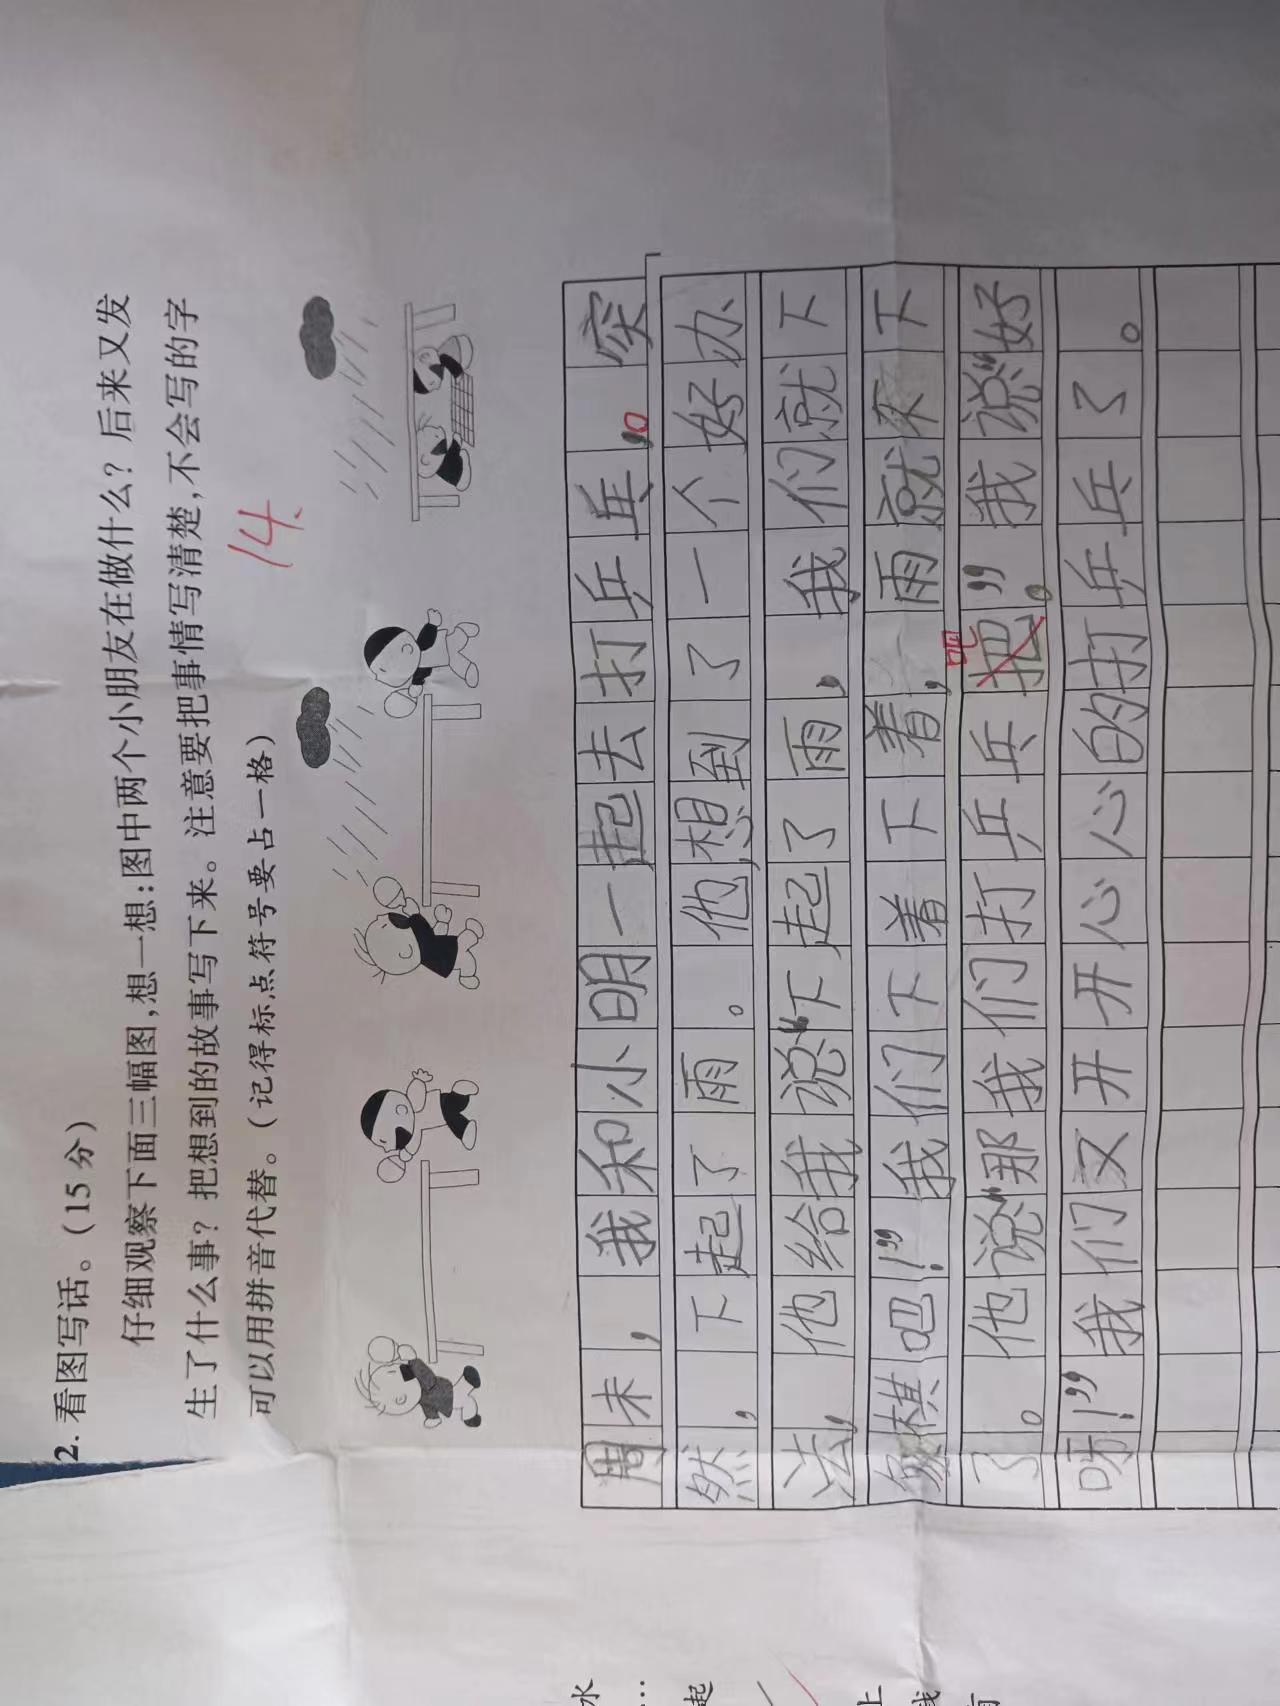 2. 看图写话。(15分)
仔细观察下面三幅图,想一想:图中两个小朋友在做什么?后来又发
生了什么事?把想到的故事写下来。注意要把事情写清楚,不会写的字
可以用拼音代替。(记得标点符号要占一格)
14.
周未,我和小明一起去打乒乓,。突
然,下起了雨。他想到了一个好办
法,他给我说“下起了雨,我们就下
象棋吧!”我们下着下着,雨就不下
了。他说“那我们打乒乓把”。我说“好
吧
呀!”我们又开开心心的打乒乓了。
水
…
起
上
我